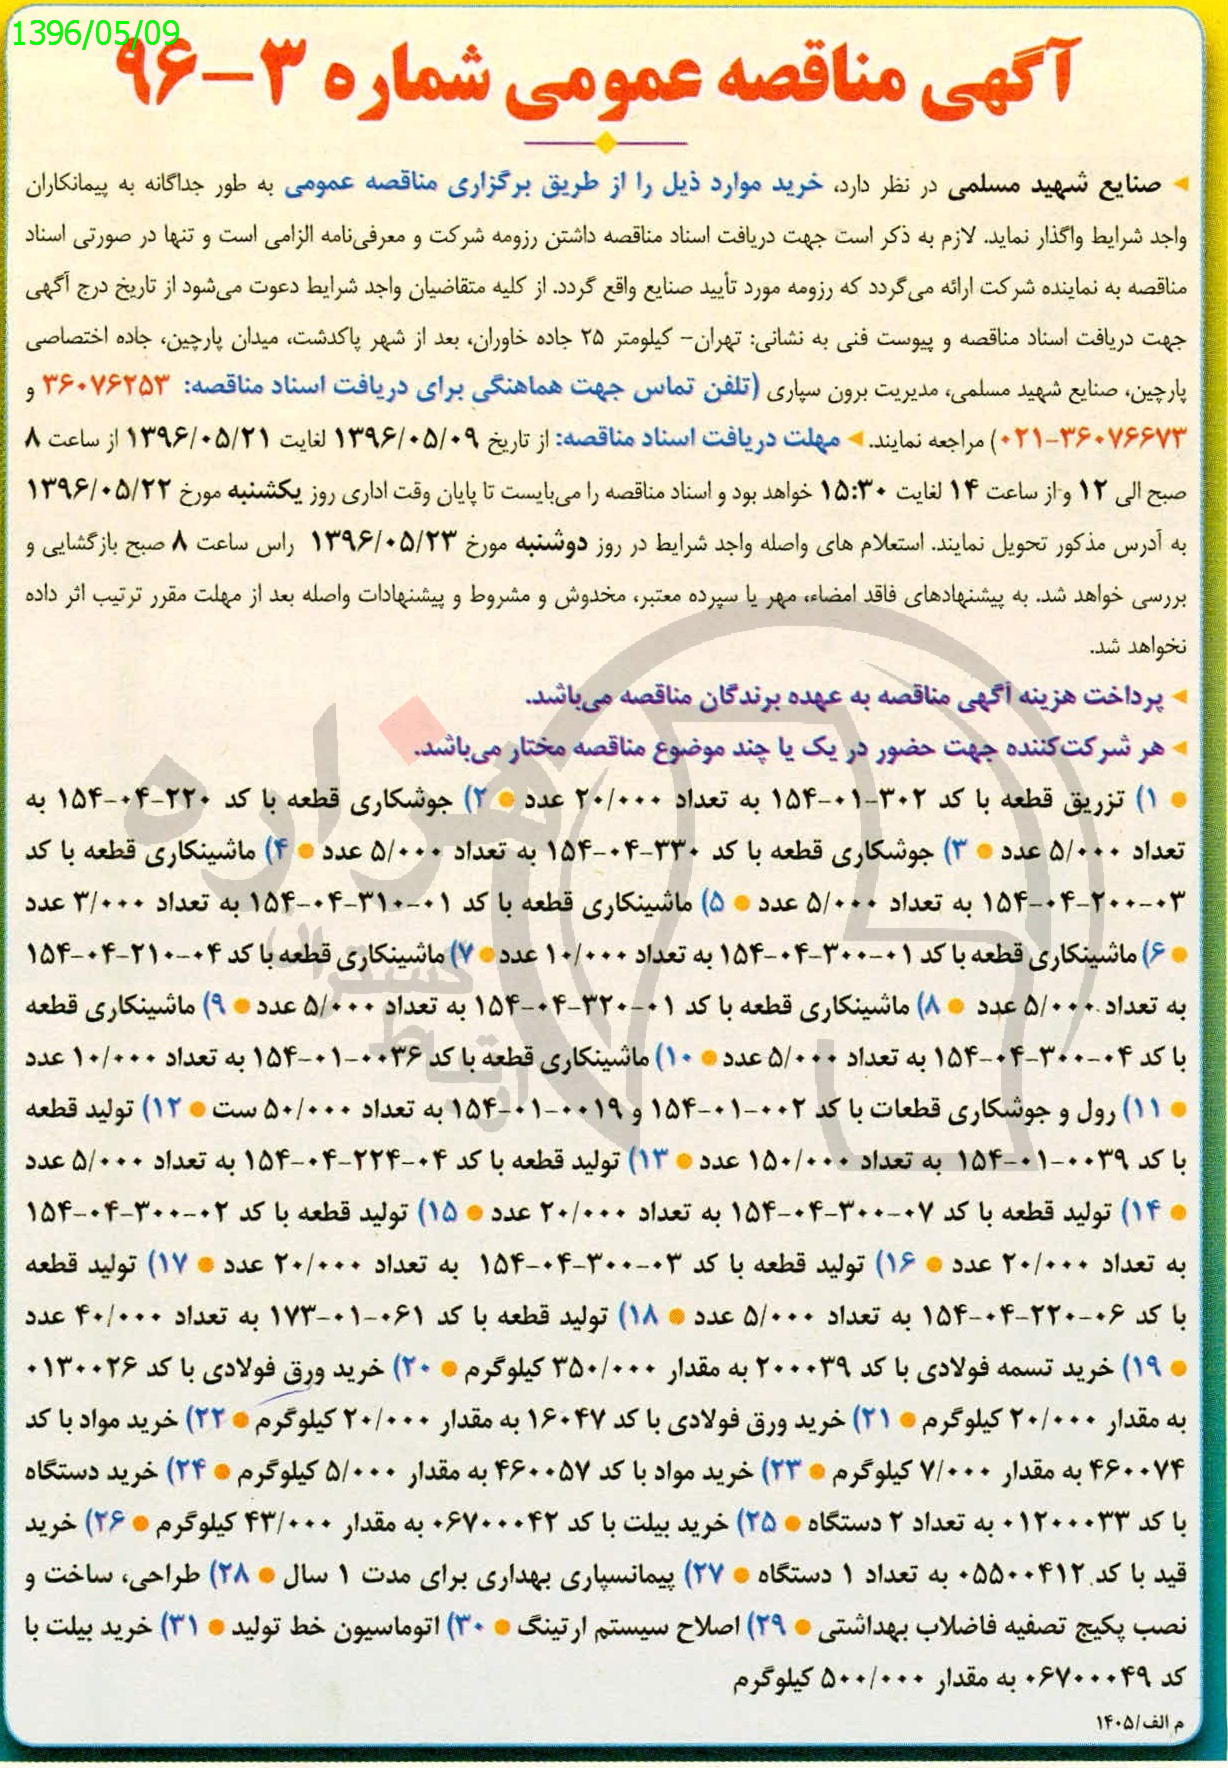 1396/05/09
آگهی مناقصه عمومی شماره ۳-۹۶
صنایع شهید مسلمی در نظر دارد، خرید موارد ذیل را از طریق برگزاری مناقصه عمومی به طور جداگانه به پیمانکاران
واجد شرایط واگذار نماید. لازم به ذکر است جهت دریافت اسناد مناقصه داشتن رزومه شرکت و معرفی‌نامه الزامی است و تنها در صورتی اسناد
مناقصه به نماینده شرکت ارائه می‌گردد که رزومه مورد تأیید صنایع واقع گردد. از کلیه متقاضیان واجد شرایط دعوت می‌شود از تاریخ درج آگهی
جهت دریافت اسناد مناقصه و پیوست فنی به نشانی: تهران- کیلومتر ۲۵ جاده خاوران، بعد از شهر پاکدشت، میدان پارچین، جاده اختصاصی
پارچین، صنایع شهید مسلمی، مدیریت برون سپاری (تلفن تماس جهت هماهنگی برای دریافت اسناد مناقصه: ۳۶۰۷۶۲۵۳ و
۰۲۱-۳۶۰۷۶۶۷۳) مراجعه نمایند. مهلت دریافت اسناد مناقصه: از تاریخ ۱۳۹۶/۰۵/۰۹ لغایت ۱۳۹۶/۰۵/۲۱ از ساعت ۸
صبح الی ۱۲ و از ساعت ۱۴ لغایت ۱۵:۳۰ خواهد بود و اسناد مناقصه را می‌بایست تا پایان وقت اداری روز یکشنبه مورخ ۱۳۹۶/۰۵/۲۲
به آدرس مذکور تحویل نمایند. استعلام های واصله واجد شرایط در روز دوشنبه مورخ ۱۳۹۶/۰۵/۲۳ راس ساعت ۸ صبح بازگشایی و
بررسی خواهد شد. به پیشنهادهای فاقد امضاء، مهر یا سپرده معتبر، مخدوش و مشروط و پیشنهادات واصله بعد از مهلت مقرر ترتیب اثر داده
نخواهد شد.
پرداخت هزینه آگهی مناقصه به عهده برندگان مناقصه می‌باشد.
هر شرکت‌کننده جهت حضور در یک یا چند موضوع مناقصه مختار می‌باشد.
● ۱) تزریق قطعه با کد ۳۰۲-۰۱-۱۵۴ به تعداد ۲۰/۰۰۰ عدد ● ۲) جوشکاری قطعه با کد ۲۲۰-۰۴-۱۵۴ به
تعداد ۵/۰۰۰ عدد ● ۳) جوشکاری قطعه با کد ۳۳۰-۰۴-۱۵۴ به تعداد ۵/۰۰۰ عدد ● ۴) ماشینکاری قطعه با کد
۰۳-۲۰۰-۰۴-۱۵۴ به تعداد ۵/۰۰۰ عدد ● ۵) ماشینکاری قطعه با کد ۰۱-۳۱۰-۰۴-۱۵۴ به تعداد ۳/۰۰۰ عدد
● ۶) ماشینکاری قطعه با کد ۰۱-۳۰۰-۰۴-۱۵۴ به تعداد ۱۰/۰۰۰ عدد ● ۷) ماشینکاری قطعه با کد ۰۴-۲۱۰-۰۴-۱۵۴
به تعداد ۵/۰۰۰ عدد ● ۸) ماشینکاری قطعه با کد ۰۱-۳۲۰-۰۴-۱۵۴ به تعداد ۵/۰۰۰ عدد ● ۹) ماشینکاری قطعه
با کد ۰۴-۳۰۰-۰۴-۱۵۴ به تعداد ۵/۰۰۰ عدد ● ۱۰) ماشینکاری قطعه با کد ۰۰۳۶-۰۱-۱۵۴ به تعداد ۱۰/۰۰۰ عدد
● ۱۱) رول و جوشکاری قطعات با کد ۰۰۲-۰۱-۱۵۴ و ۰۰۱۹-۰۱-۱۵۴ به تعداد ۵۰/۰۰۰ ست ● ۱۲) تولید قطعه
با کد ۰۰۳۹-۰۱-۱۵۴ به تعداد ۱۵۰/۰۰۰ عدد ● ۱۳) تولید قطعه با کد ۰۴-۲۲۴-۰۴-۱۵۴ به تعداد ۵/۰۰۰ عدد
● ۱۴) تولید قطعه با کد ۰۷-۳۰۰-۰۴-۱۵۴ به تعداد ۲۰/۰۰۰ عدد ● ۱۵) تولید قطعه با کد ۰۲-۳۰۰-۰۴-۱۵۴
به تعداد ۲۰/۰۰۰ عدد ● ۱۶) تولید قطعه با کد ۰۳-۳۰۰-۰۴-۱۵۴ به تعداد ۲۰/۰۰۰ عدد ● ۱۷) تولید قطعه
با کد ۰۶-۲۲۰-۰۴-۱۵۴ به تعداد ۵/۰۰۰ عدد ● ۱۸) تولید قطعه با کد ۰۶۱-۰۱-۱۷۳ به تعداد ۴۰/۰۰۰ عدد
● ۱۹) خرید تسمه فولادی با کد ۲۰۰۰۳۹ به مقدار ۳۵۰/۰۰۰ کیلوگرم ● ۲۰) خرید ورق فولادی با کد ۰۱۳۰۰۲۶
به مقدار ۲۰/۰۰۰ کیلوگرم ● ۲۱) خرید ورق فولادی با کد ۱۶۰۴۷ به مقدار ۲۰/۰۰۰ کیلوگرم ● ۲۲) خرید مواد با کد
۴۶۰۰۷۴ به مقدار ۷/۰۰۰ کیلوگرم ● ۲۳) خرید مواد با کد ۴۶۰۰۵۷ به مقدار ۵/۰۰۰ کیلوگرم ● ۲۴) خرید دستگاه
با کد ۰۱۲۰۰۰۳۳ به تعداد ۲ دستگاه ● ۲۵) خرید بیلت با کد ۰۶۷۰۰۰۴۲ به مقدار ۴۳/۰۰۰ کیلوگرم ● ۲۶) خرید
قید با کد ۰۵۵۰۰۴۱۲ به تعداد ۱ دستگاه ● ۲۷) پیمانسپاری بهداری برای مدت ۱ سال ● ۲۸) طراحی، ساخت و
نصب پکیج تصفیه فاضلاب بهداشتی ● ۲۹) اصلاح سیستم ارتینگ ● ۳۰) اتوماسیون خط تولید ● ۳۱) خرید بیلت با
کد ۰۶۷۰۰۰۴۹ به مقدار ۵۰۰/۰۰۰ کیلوگرم
م الف/۱۴۰۵
هزاره